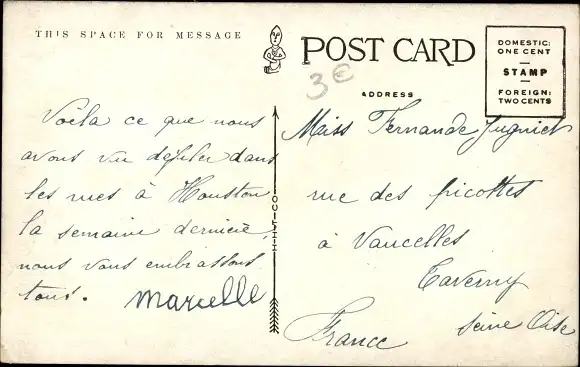 THIS SPACE FOR MESSAGE
POST CARD
3€
ADDRESS
DOMESTIC:
ONE CENT
STAMP
FOREIGN:
TWO CENTS
H-H-T-CO
Voila ce que nous
avons vu defiler dans
les rues à Houston
la semaine dernière,
nous vous embrassons
tous.
Marcelle
Miss Fernande Jugniet
rue des picottes
à Vaucelles
Taverny
Seine Oise
France